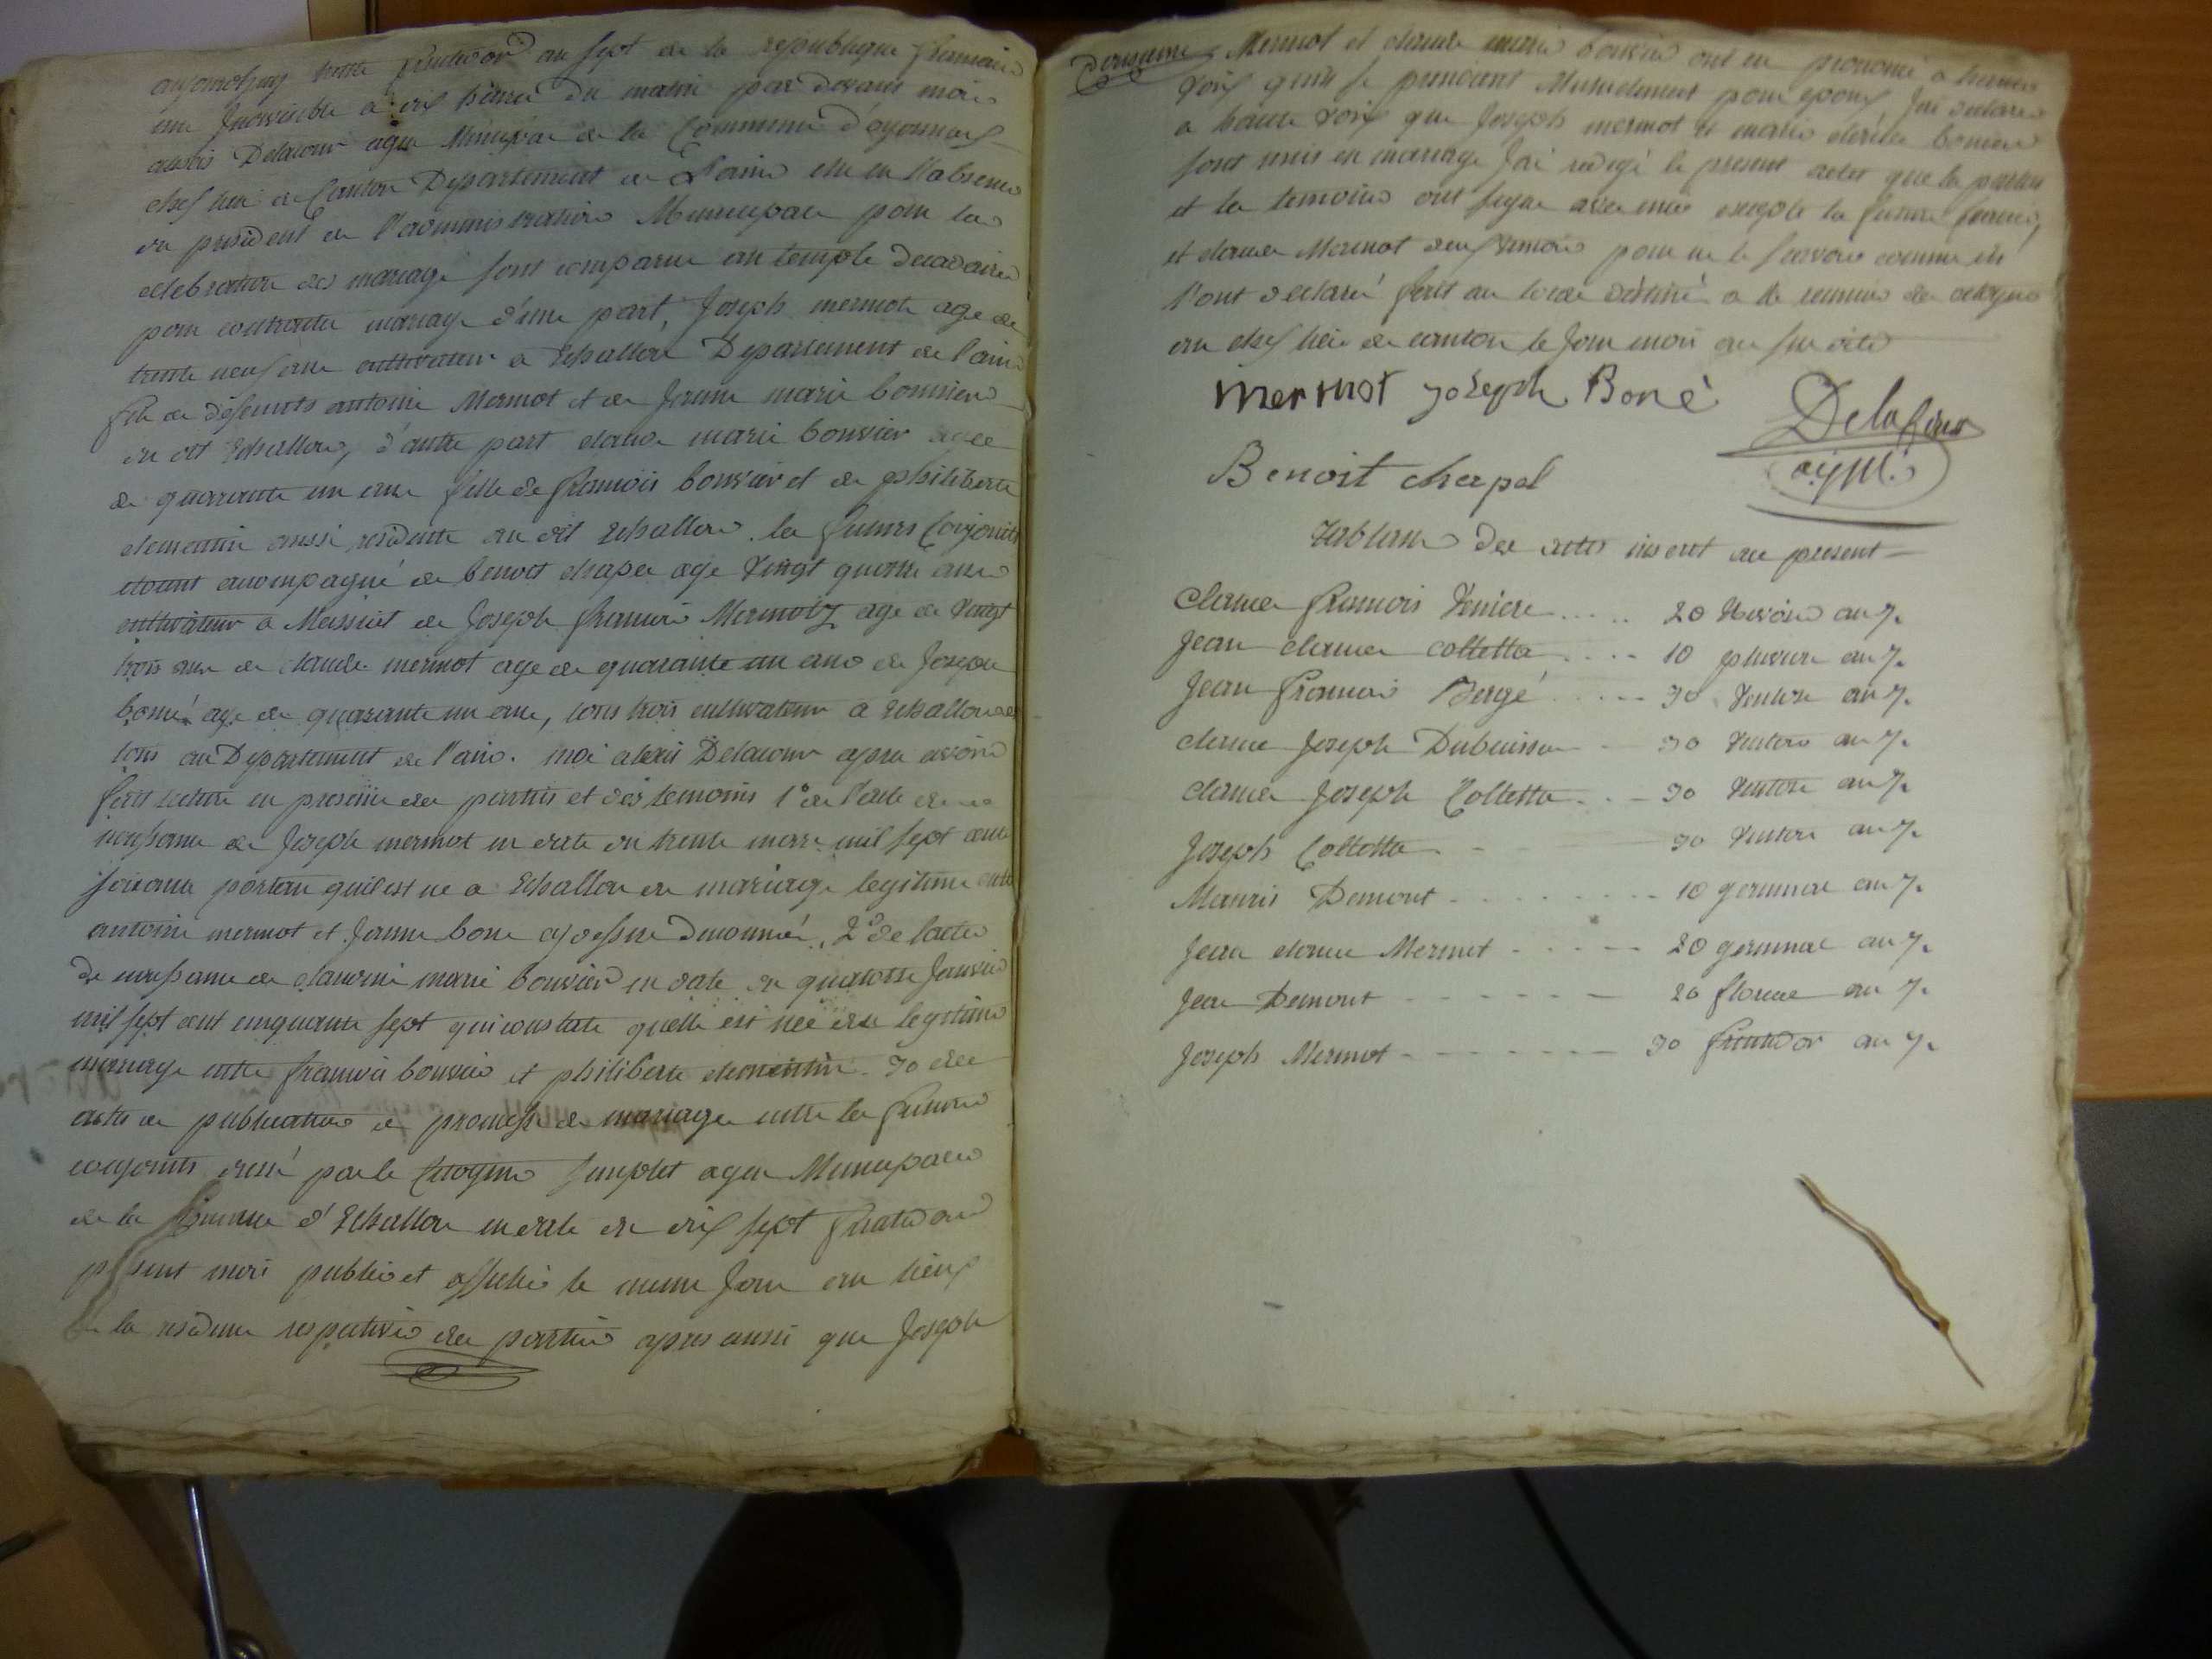 aujourdhuy trente fructidor an sept de la republique francaise
une Indivisible a dix heures du matin par devant moi
alexis Delacour agen Municipal de la Commune d'oyonnax
chef lieu de Canton Departement de L'ain elu en l'absence
du president de l'administration Municipale pour la
celebration des mariage sont comparu au temple decadaire
pour contracter mariage d'une part, Joseph mermot age de
trente neuf ans cultivateur a Echallon Departement de l'ain
fils de défunts antoine Mermot et de Jeanne marie
du dit Echallon, d'autre part claude marie bouvier agée
de quarante un ans fille de francois bouvier et de philiberte
clementin aussi residente au dit Echallon. les futurs Conjoints
etoient accompagné de benoit chapel age Vingt quatre ans
cultivateur a Massiat de Joseph francois Mermotz age de vingt
trois ans de claude mermot age de quarante un ans de Joseph
boné age de quarante un ans, tous trois cultivateur a Echallon
tous au Departement de l'ain. moi alexis Delacour apres avoir
fait lecture en presence des parties et des temoins 1° de l'acte de
naissance de Joseph mermot en date du trente mars mil sept cents
soixante portan quil est ne a Echallon du mariage legitime entre
antoine mermot et Jeanne bone cy dessus denommé, 2° de lacte
de naissance de claudine marie bouvier en date du quatorze Janvier
mil sept cent cinquante sept qui constate quelle est née du legitime
mariage entre francois bouvier et philiberte clementin. 3o des
actes de publication de promesse de mariage entre les futurs
conjoints dressé par le Citoyen agen Municipal
de la Commune d'Echallon en date du dix sept fructidor
present mois publié et affiché le meme Jour au lieux
de la residence respective des parties apres aussi que Joseph
Mermot et claude marie bouvier ont eu prononcé a haute
voix quils se prenoient Mutuelement pour epoux, Jai declaré
a haute voix que Joseph mermot et marie bouvier
sont unis en mariage Jai redigé le present actes que les parties
et les temoins ont signe avec moi excepté la future
et claude Mermot temoins pour ne le scavoir comme ils
l'ont declaré fait au local destiné a la reunion des citoyens
au chef lieu de canton le Jour mois an sus dits
mermot joseph Boné
Delacour
agt ml.
Benoit chapel
Tableau des actes inseret au present
Claude francois 20 Nivose an 7.
Jean claude Colletta 10 pluviose an 7.
Jean francois Bergé 30 Ventose an 7.
claude Joseph Dubuisson 30 Ventose an 7.
claude Joseph Colletta 30 Ventose an 7.
Joseph Colletta 30 Ventose an 7.
Mauris Demont 10 germinal an 7.
Jean claude Mermet 20 germinal an 7.
Jean Demont 20 floreal an 7.
Joseph Mermot 30 fructidor an 7.